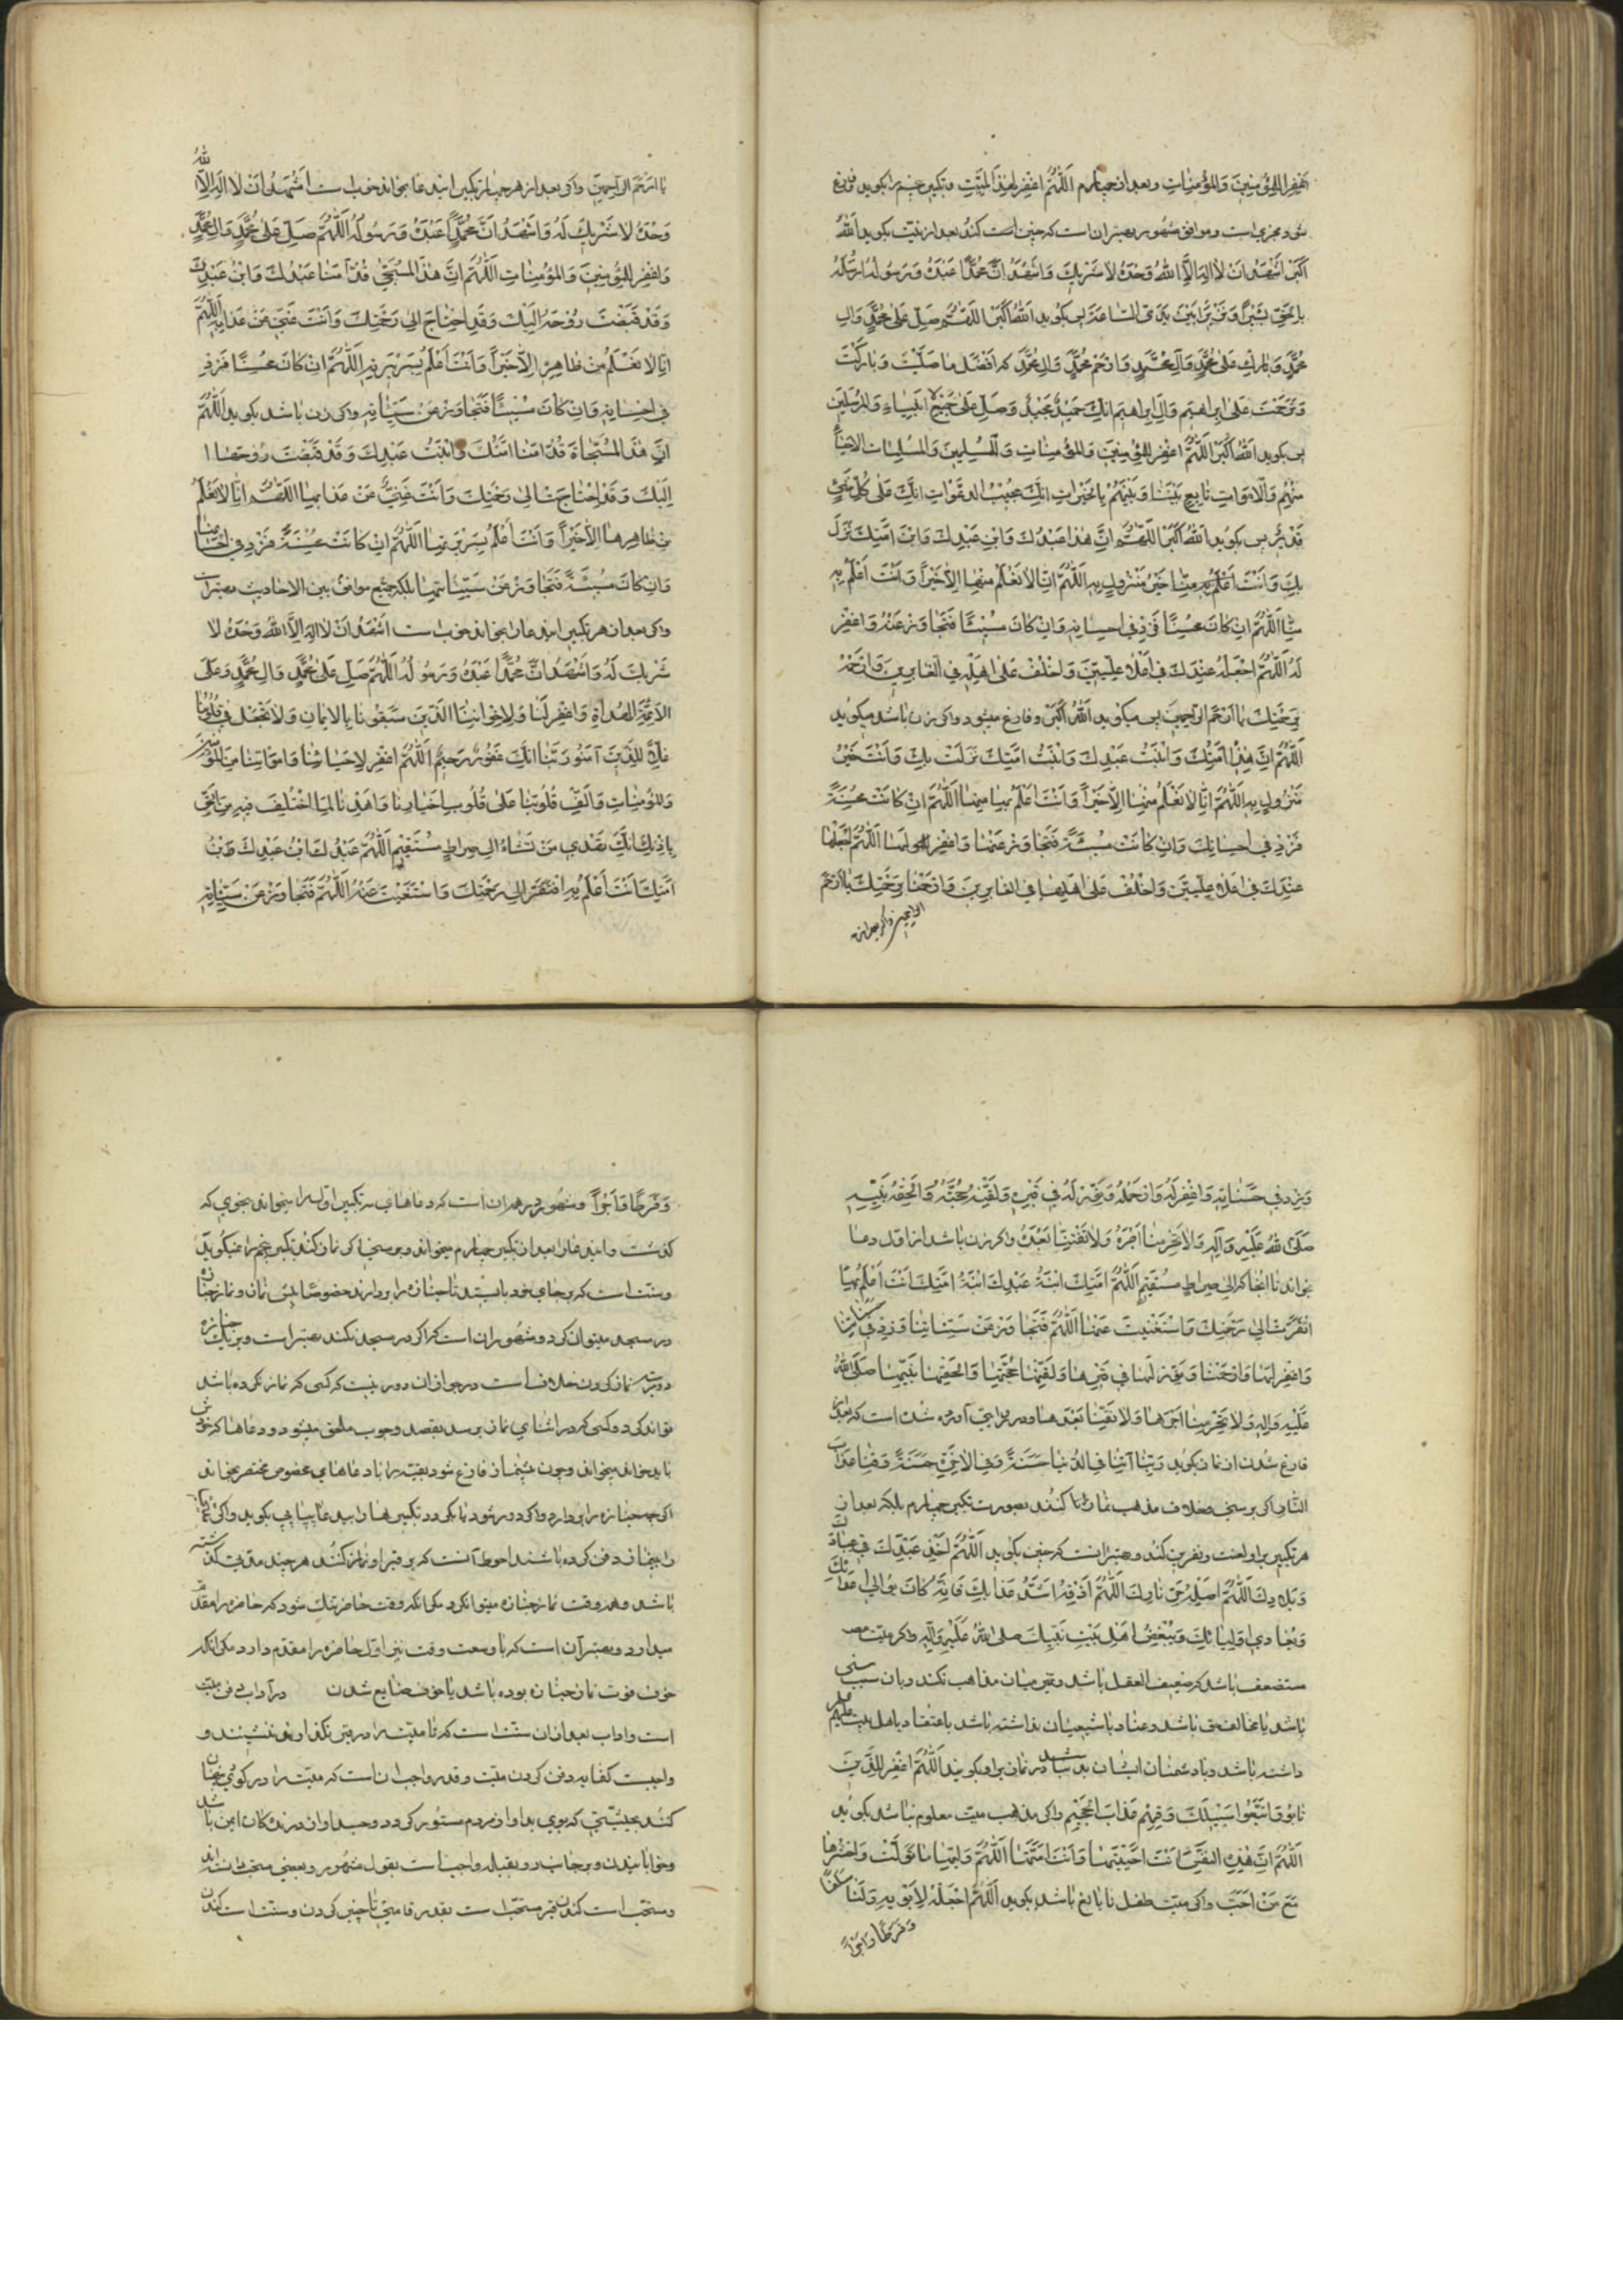 اغفر للمؤمنین وَالمؤمِناتِ وبعد از چهارم اَللّٰهُمَّ اغفِر لِهٰذَا المَیِّتِ و تکبیر پنجم را بکوید و فارغ
شود مجزی است و موافق مشهور بهتر ان است که چنین است کند بعد از نیّت بکوید اَللّٰهُ
اَکبَرُ اَشهَدُ اَن لا اِلٰهَ اِلَّا اللّٰهُ وَحدَهُ لا شَرِیكَ وَ اَشهَدُ اَنَّ مُحَمَّدًا عَبدُهُ وَ رَسُولُهُ اَرسَلَهُ
بِالحَقِّ بَشیرًا وَ نَذیرًا بَینَ یَدَیِ السّاعَةِ پس بکوید اَللّٰهُ اَکبَرُ اَللّٰهُمَّ صَلِّ عَلیٰ مُحَمَّدٍ وَ الِ
مُحَمَّدٍ وَ بارِك عَلیٰ مُحَمَّدٍ وَ آلِ مُحَمَّدٍ وَ ارحَم مُحَمَّدًا وَ الَ مُحَمَّدٍ کَاَفضَلِ ما صَلَّیتَ وَ بارَکتَ
وَ تَرَحَّمتَ عَلیٰ اِبراهیمَ وَ الِ اِبراهیمَ اِنَّكَ حَمیدٌ مَجیدٌ وَ صَلِّ عَلیٰ جَمیعِ الانبِیاءِ وَ المُرسَلینَ
پس بکوید اَللّٰهُ اَکبَرُ اَللّٰهُمَّ اغفِر لِلمُؤمِنینَ وَ المُؤمِناتِ وَ المُسلِمینَ وَ المُسلِماتِ الاَحیاءِ
مِنهُم وَ الاَمواتِ تابِع بَینَنا وَ بَینَهُم بِالخَیراتِ اِنَّكَ مُجیبُ الدَّعَواتِ اِنَّكَ عَلیٰ کُلِّ شَیءٍ
قَدیرٌ پس بکوید اَللّٰهُ اَکبَرُ اَللّٰهُمَّ اِنَّ هٰذا عَبدُكَ وَ ابنُ عَبدِكَ وَ ابنُ اَمَتِكَ نَزَلَ
بِكَ وَ اَنتَ خَیرُ مَنزُولٍ بِهِ اَللّٰهُمَّ اِنّا لا نَعلَمُ مِنهُ اِلّا خَیرًا وَ اَنتَ اَعلَمُ بِهِ
مِنّا اَللّٰهُمَّ اِن کانَ مُحسِنًا فَزِد فی اِحسانِهِ وَ اِن کانَ مُسیئًا فَتَجاوَز عَنهُ وَ اغفِر
لَهُ اَللّٰهُمَّ اجعَلهُ عِندَكَ فی اَعلیٰ عِلِّیّینَ وَ اخلُف عَلیٰ اَهلِهِ فی الغابِرینَ وَ ارحَمهُ
بِرَحمَتِكَ یا اَرحَمَ الرّاحِمینَ پس میکوید اَللّٰهُ اَکبَرُ و فارغ میشود و اکر زن باشد میکوید
اَللّٰهُمَّ اِنَّ هٰذِهِ اَمَتُكَ وَ ابنَتُ عَبدِكَ وَ ابنَتُ اَمَتِكَ نَزَلَت بِكَ وَ اَنتَ خَیرُ
مَنزُولٍ بِهِ اَللّٰهُمَّ اِنّا لا نَعلَمُ مِنها اِلّا خَیرًا وَ اَنتَ اَعلَمُ بِها مِنّا اَللّٰهُمَّ اِن کانَت مُحسِنَةً
فَزِد فی اِحسانِها وَ اِن کانَت مُسیئَةً فَتَجاوَز عَنها وَ اغفِر لَها اَللّٰهُمَّ اجعَلها
عِندَكَ فی اَعلیٰ عِلِّیّینَ وَ اخلُف عَلیٰ اَهلِها فی الغابِرینَ وَ ارحَمها بِرَحمَتِكَ یا اَرحَمَ
یا ارحم الراحمین واکر بعد از هر چهار تکبیر این دعا بخواند خوب است اَشهَدُ اَن لا اِلٰهَ اِلَّا اللّٰه
وَحدَهُ لا شَریكَ لَهُ وَ اَشهَدُ اَنَّ مُحَمَّدًا عَبدُهُ وَ رَسُولُهُ اَللّٰهُمَّ صَلِّ عَلیٰ مُحَمَّدٍ وَ الِ مُحَمَّدٍ
وَ اغفِر لِلمُؤمِنینَ وَ المُؤمِناتِ اَللّٰهُمَّ اِنَّ هٰذَا المُسَجّیٰ قُدّامَنا عَبدُكَ وَ ابنُ عَبدِكَ
وَ قَد قَبَضتَ رُوحَهُ اِلَیكَ وَ قَدِ احتاجَ اِلیٰ رَحمَتِكَ وَ اَنتَ غَنِیٌّ عَن عَذابِهِ اَللّٰهُمَّ
اِنّا لا نَعلَمُ مِن ظاهِرِهِ اِلّا خَیرًا وَ اَنتَ اَعلَمُ بِسَریرَتِهِ اَللّٰهُمَّ اِن کانَ مُحسِنًا فَزِد
فی اِحسانِهِ وَ اِن کانَ مُسیئًا فَتَجاوَز عَن سَیِّئاتِهِ واکر زن باشد بکوید اَللّٰهُمَّ
اِنَّ هٰذِهِ المُسَجّاةَ قُدّامَنا اَمَتُكَ وَ ابنَتُ عَبدِكَ وَ قَد قَبَضتَ رُوحَها
اِلَیكَ وَ قَدِ احتاجَت اِلیٰ رَحمَتِكَ وَ اَنتَ غَنِیٌّ عَن عَذابِها اَللّٰهُمَّ اِنّا لا نَعلَمُ
مِن ظاهِرِها اِلّا خَیرًا وَ اَنتَ اَعلَمُ بِسَریرَتِها اَللّٰهُمَّ اِن کانَت مُحسِنَةً فَزِد فی اِحسانِها
وَ اِن کانَت مُسیئَةً فَتَجاوَز عَن سَیِّئاتِها بلکه جمع موافق بین الاحادیث بهتر است
واکر بعد از هر تکبیر این دعا را بخواند خوب است اَشهَدُ اَن لا اِلٰهَ اِلَّا اللّٰهُ وَحدَهُ لا
شَریكَ لَهُ وَ اَشهَدُ اَنَّ مُحَمَّدًا عَبدُهُ وَ رَسُولُهُ اَللّٰهُمَّ صَلِّ عَلیٰ مُحَمَّدٍ وَ الِ مُحَمَّدٍ وَ عَلیٰ
الاَئِمَّةِ الهُداةِ وَ اغفِر لَنا وَ لِاِخوانِنَا الَّذینَ سَبَقُونا بِالایمانِ وَ لا تَجعَل فی قُلُوبِنا
غِلًّا لِلَّذینَ آمَنُوا رَبَّنا اِنَّكَ غَفُورٌ رَحیمٌ اَللّٰهُمَّ اغفِر لِاَحیائِنا وَ اَمواتِنا مِنَ المُؤمِنینَ
وَ المُؤمِناتِ وَ اَلِّف قُلُوبَنا عَلیٰ قُلُوبِ اَخیارِنا وَ اهدِنا لِمَا اختُلِفَ فیهِ مِنَ الحَقِّ
بِاِذنِكَ اِنَّكَ تَهدی مَن تَشاءُ اِلیٰ صِراطٍ مُستَقیمٍ اَللّٰهُمَّ عَبدُكَ ابنُ عَبدِكَ وَ ابنُ
اَمَتِكَ اَنتَ اَعلَمُ بِهِ افتَقَرَ اِلیٰ رَحمَتِكَ وَ استَغنَیتَ عَنهُ اَللّٰهُمَّ فَتَجاوَز عَن سَیِّئاتِهِ
وَ زِد فی حَسَناتِهِ وَ اغفِر لَهُ وَ ارحَمهُ وَ نَوِّر لَهُ فی قَبرِهِ وَ لَقِّنهُ حُجَّتَهُ وَ اَلحِقهُ بِنَبِیِّهِ
صَلَّی اللّٰهُ عَلَیهِ وَ آلِهِ وَ لا تَحرِمنا اَجرَهُ وَ لا تَفتِنّا بَعدَهُ واکر زن باشد از اول دعا
بخواند تا انجا که الیٰ صِراطٍ مُستَقیمٍ اَللّٰهُمَّ اَمَتُكَ ابنَةُ عَبدِكَ ابنَةُ اَمَتِكَ اَنتَ اَعلَمُ بِها
افتَقَرَت اِلیٰ رَحمَتِكَ وَ استَغنَیتَ عَنها اَللّٰهُمَّ فَتَجاوَز عَن سَیِّئاتِها وَ زِد فی حسناتها
وَ اغفِر لَها وَ ارحَمها وَ نَوِّر لَها فی قَبرِها وَ لَقِّنها حُجَّتَها وَ اَلحِقها بِنَبِیِّها صَلَّی اللّٰهُ
عَلَیهِ وَ الِهِ وَ لا تَحرِمنا اَجرَها وَ لا تَفتِنّا بَعدَها و در روایتی آورده شده است که بعد از
فارغ شدن از نماز بکوید رَبَّنا آتِنا فِی الدُّنیا حَسَنَةً وَ فِی الاخِرَةِ حَسَنَةً وَ قِنا عَذابَ
النّارِ اکر بر سنی خلاف مذهب نماز کنند بصورت تکبیر چهارم بلکه بعد از
هر تکبیر بر او لعنت و نفرین کند و بهتر انست که چنین بکوید اَللّٰهُمَّ اَخزِ عَبدَكَ فی عِبادِكَ
وَ بِلادِكَ اَللّٰهُمَّ اَصلِهِ حَرَّ نارِكَ اَللّٰهُمَّ اَذِقهُ اَشَدَّ عَذابِكَ فَاِنَّهُ کانَ یُوالی اَعداءَكَ
وَ یُعادی اَولِیائَكَ وَ یُبغِضُ اَهلَ بَیتِ نَبِیِّكَ صلی اللّٰهُ عَلَیهِ وَ آلِهِ واکر میّت
مستضعف باشد که ضعیف العقل باشد و تمیز میان مذاهب نکند و بان سبب سنی
باشد یا مخالف حق باشد و عناد با شیعیان نداشته باشد یا اعتقاد باهل بیت علیهم
داشته باشد و با دشمنان ایشان بد نباشد در نماز بر او بکوید اَللّٰهُمَّ اغفِر لِلَّذینَ
تابُوا وَ اتَّبَعُوا سَبیلَكَ وَ قِهِم عَذابَ الجَحیمِ واکر مذهب میّت معلوم نباشد بکوید
اَللّٰهُمَّ اِنَّ هٰذِهِ النَّفسَ اَنتَ اَحیَیتَها وَ اَنتَ اَمَتَّها اَللّٰهُمَّ وَلِّها ما تَوَلَّت وَ احشُرها
مَعَ مَن اَحَبَّت واکر میّت طفل نابالغ باشد بکوید اَللّٰهُمَّ اجعَلهُ لِاَبَوَیهِ وَ لَنا سَلَفًا
وَ فَرَطًا وَ اَجرًا
وَ فَرَطًا وَ اَجرًا و مشهور در همه ان است که دعاهای تکبیر اول را بخواند بنحوی که
کذشت و این دعا را بعد از تکبیر چهارم میخواند و بر سنی اکر نماز کند تکبیر پنجم را نمیکوید
و سنت است که بر جای خود بایستد تا جنازه را بردارند خصوصًا پیش نماز و نماز جنازه
در مسجد میتوان کرد و مشهور ان است که اکر در مسجد نکند بهتر است و بر یك جنازه
دو مرتبه نماز کردن خلاف است در جواز ان دور نیست که کسی که نماز نکرده باشد
تواند کرد و کسی که در اثنای نماز برسد بقصد وجوب ملحق میشود و دعاها که خود
باید خواند میخواند و چون پیشنماز فارغ شود بقیّه را با دعاهای مخصوص مختصر بخواند
باشد و همه وقت نماز جنازه میتوان کرد مکر انکه وقت حاضره تنك شود که حاضره را مقدم
میدارد و بهتر آن است که با وسعت وقت نیز اول حاضره را مقدم دارد مکر انکه
خوف فوت نماز جنازه بوده باشد یا خوف ضایع شدن در آداب دفن میّت
است و اداب بعد از ان سنّت است که تا میّت را در قبر نکذارند ننشینند و
واجبست کفایه دفن کردن میّت و قدر واجب ان است که میّت را در کوی پنهان
کنند بحیثیّتی که بوی بد او از مردم مستور کردد و جسد او از درندکان ایمن باشد
و خوابانیدن بر جانب راست رو بقبله واجب است بقول مشهور و بعضی مستحب دانسته اند
و مستحب است کندن قبر مستحب است بقدر قامتی تا چنبر کردن و سنت است کندن